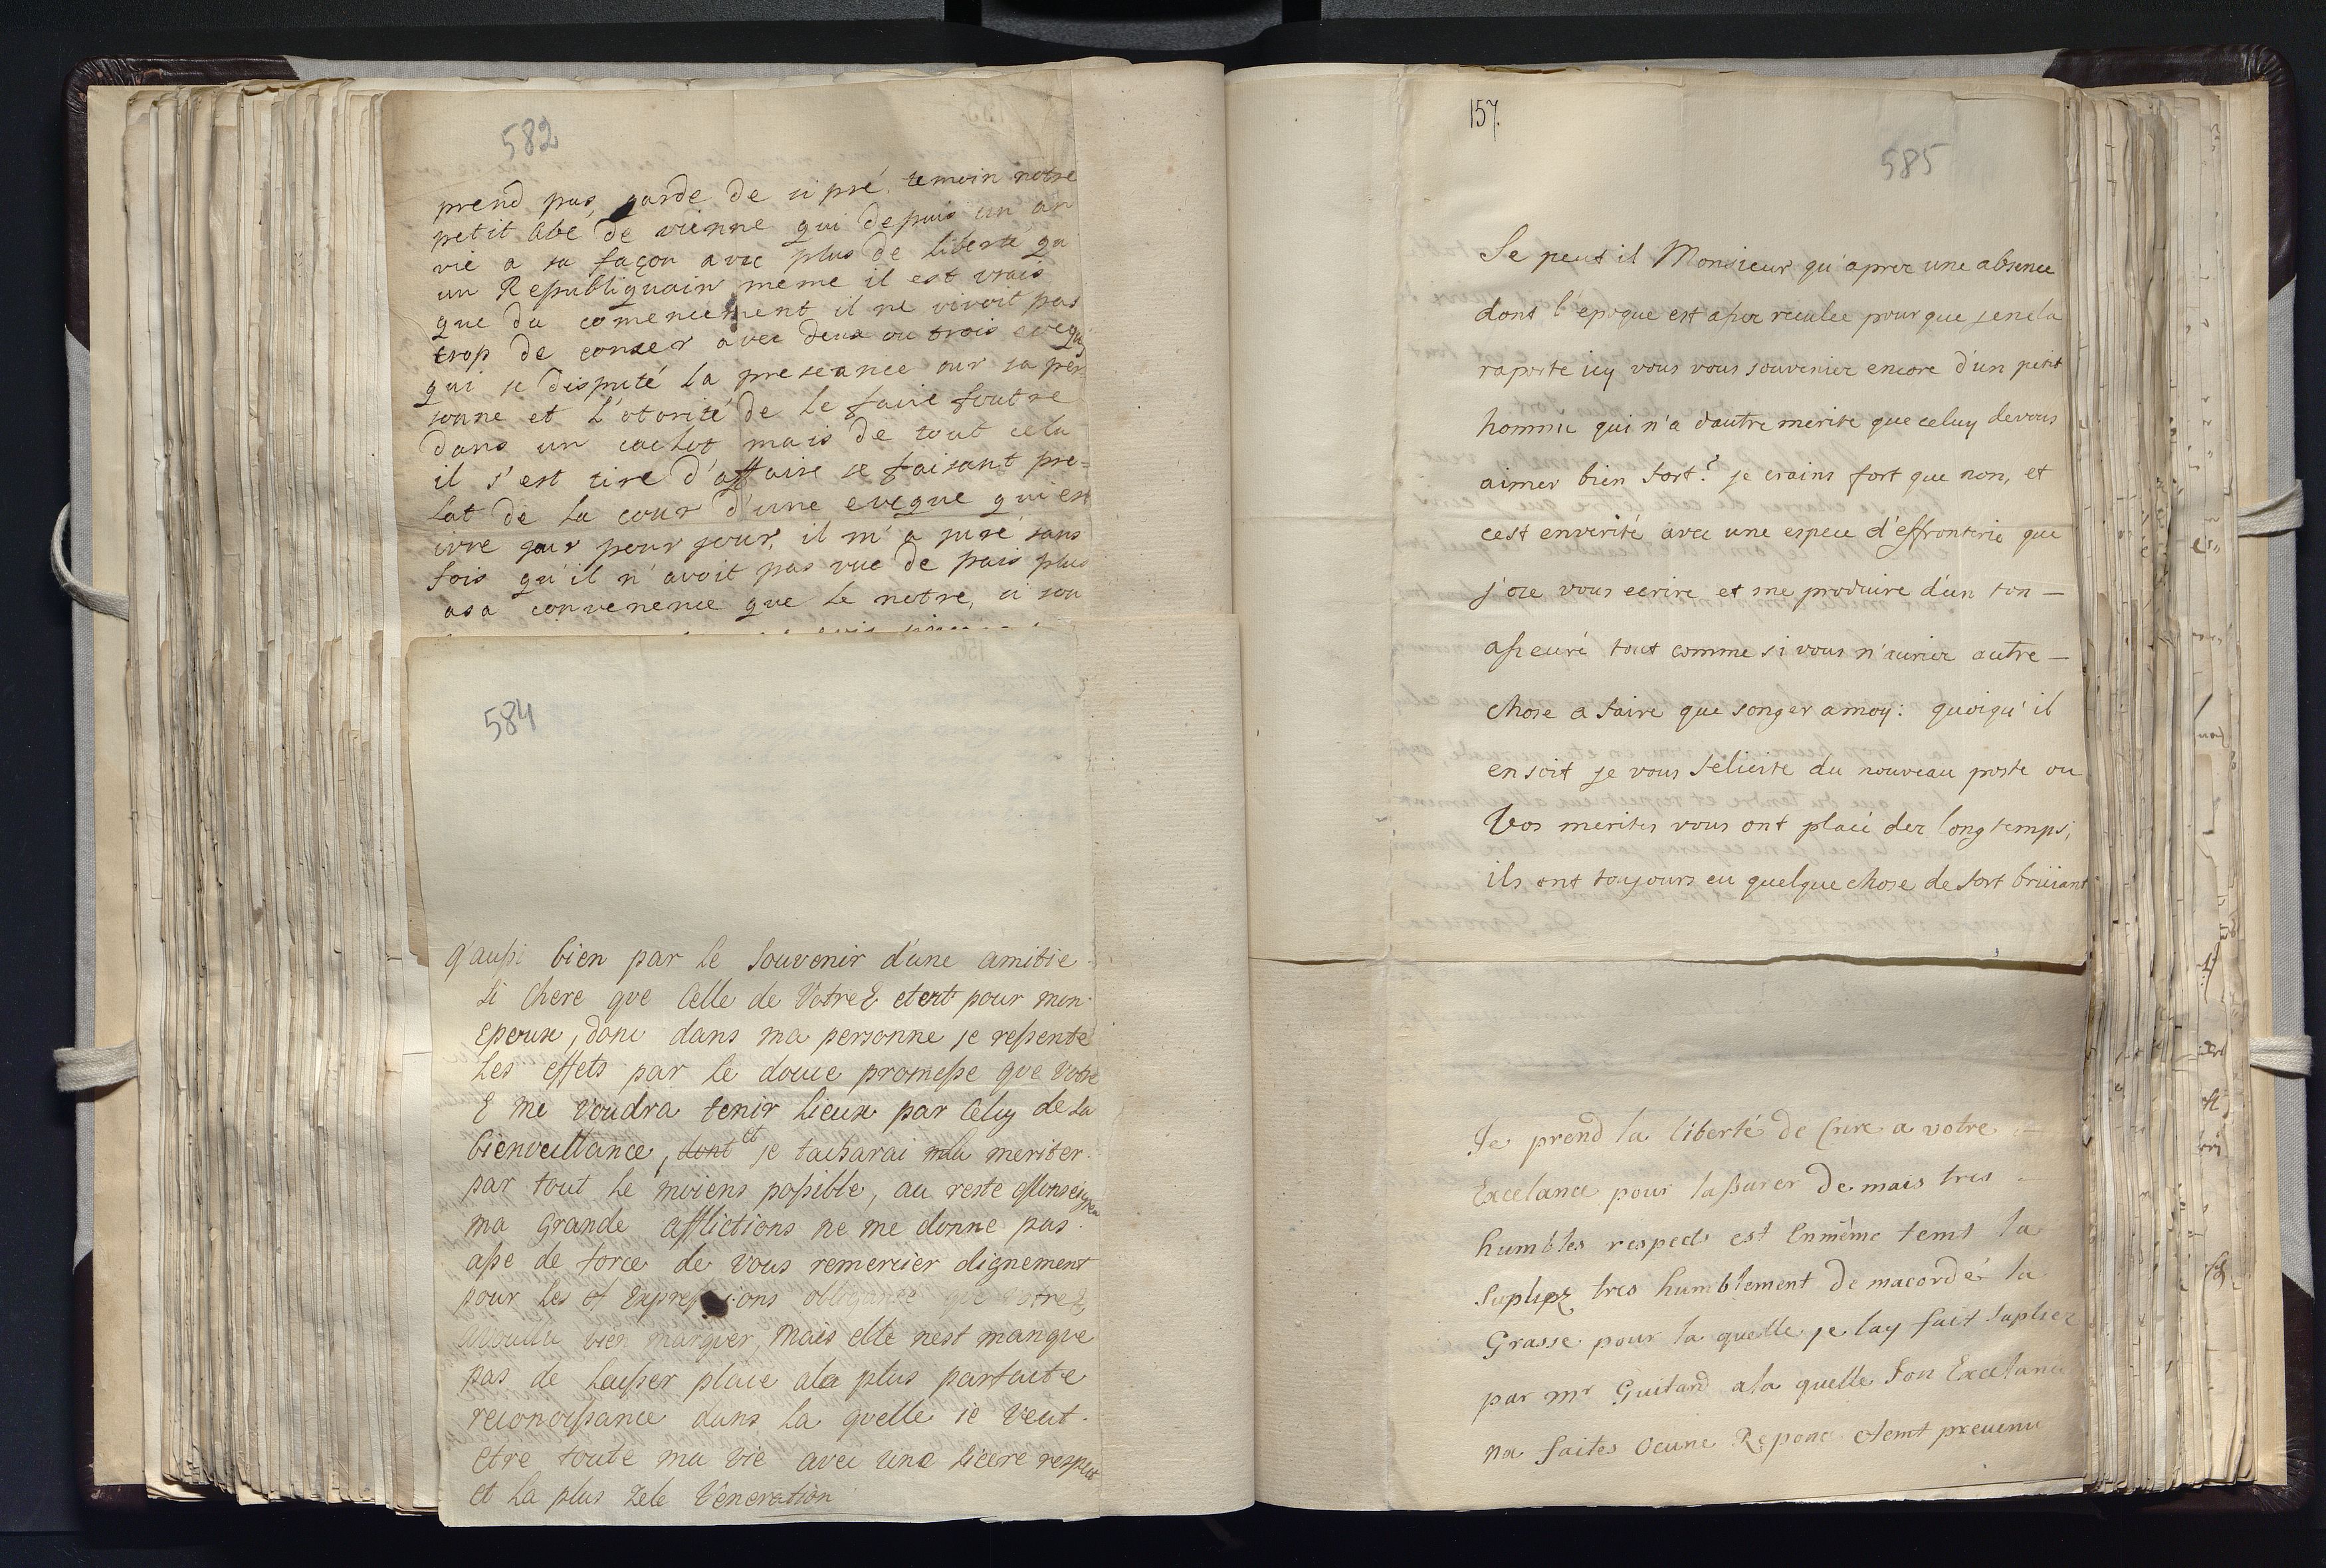 582
prend pas garde de si pré. temoin notre
petit Abé de vienne qui depuis un an
vie a sa façon avec plus de liberte qu
un Republiquain meme il est vrais
que du comencement il ne vivoit pas
trop de concer avec deux ou trois eveq
qui se disputé la preseance sur sa per=
sonne et l'otorité de le faire foutre
dans un cachot mais de tout cela
il s'est tiré d'affaire se faisant pre=
lat de la cour d'une eveque qui est
ivre jour pour jour, il m'a juré sans
fois qu'il n'avoit pas vue de pais plus
asa convenence que le notre, si son
584
q'aussi bien par le souvenir d'une amitie
si chere que Celle de Votre E etert pour mon
Epoux, donc dans ma personne je ressente
Les effets par le douce promesse que Votre
E me voudra tenir lieux par Celuy de sa
bienveillance, dont et je tacharai la meriter
par tout le moiens possible, au reste Monseigneu
ma Grande afflictions ne me donne pas
asse de force de vous remercier dignement
pour les Expressions obligeante que Votre E
bien marquer, mais elle nest manque
pas de laisser place ala plus parfaite
reconoissance dans la quelle ie veut
etre toute ma vie avec une sicere respect
et la plus zele Veneration
157.
585
Se peut il Monsieur qu'aprez une absence
dont l'epoque est assez reculée pour que je ne la
raporte icy vous vous souveniez encore d'un petit
homme qui n'a d'autre merite que celuy de vous
aimer bien fort? je crains fort que non, et
c'est en verité avec une espece d'effronterie que
j'ose vous ecrire et me produire d'un ton —
asseuré tout comme si vous n'auriez autre —
chose a faire que songer a moy: quoiqu'il
en soit je vous felicite du nouveau poste ou
Vos merites vous ont placé dez long temps;
ils ont toujours eu quelque chose de fort brüiant
Je prend la liberté de Crire a votre
Excelance pour lassurer de mais tres
humbles respects est Enmême temt la
Supliez tres humblement de macordé la
Grasse pour la quelle je lay fait supliez
par mr Guitard ala quelle Son Excelance
na faites Ocune Reponc etemt prevenu